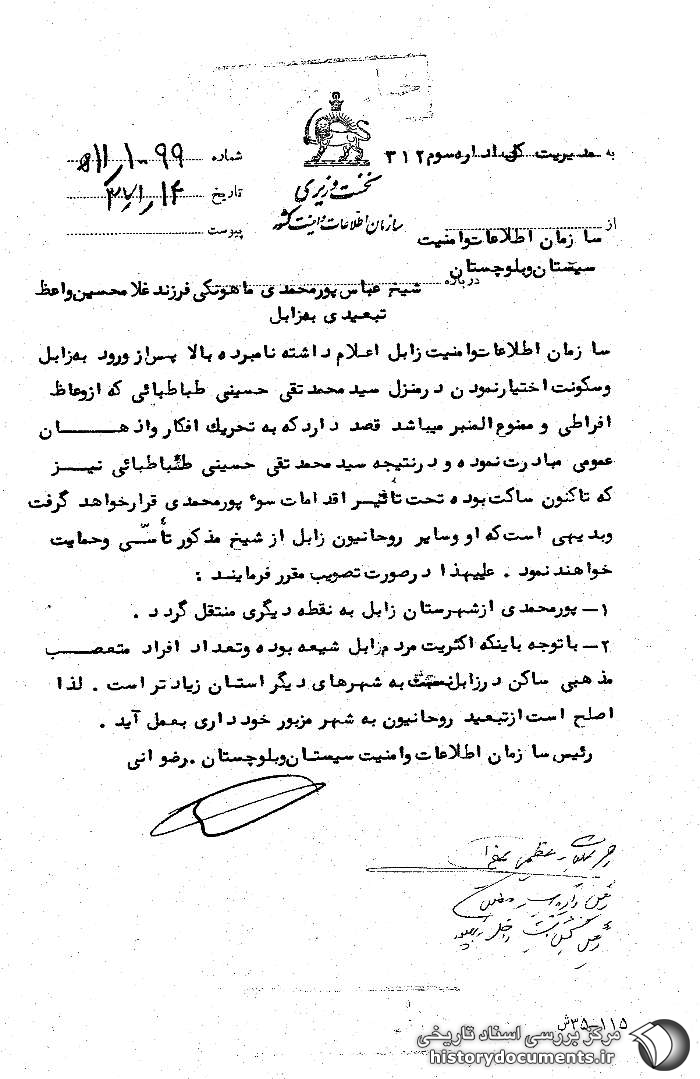 به مدیریت کل اداره سوم ۳۱۲
شماره ۱۰۹۹ر۵۱۱
تاریخ ۱۴ر۱ر۳۷
پیوست
نخست وزیری
سازمان اطلاعات و امنیت کشور
از سازمان اطلاعات وامنیت
سیستان وبلوچستان
درباره شیخ عباس پورمحمدی ماهونکی فرزند غلامحسین واعظ
تبعیدی بهزابل
سازمان اطلاعات وامنیت زابل اعلام داشته نامبرده بالا پس از ورود بهزابل
وسکونت اختیارنمودن درمنزل سید محمد تقی حسینی طباطبائی که ازوعاظ
افراطی و ممنوع المنبر میباشد قصد دارد که به تحریک افکار واذهان
عمومی مبادرت نموده و درنتیجه سید محمد تقی حسینی طباطبائی نیز
که تاکنون ساکت بوده تحت تأثیر اقدامات سوء پورمحمدی قرارخواهد گرفت
وبدیهی است که او وسایر روحانیون زابل از شیخ مذکور تأسّی وحمایت
خواهند نمود . علیهذا درصورت تصویب مقرر فرمایند :
۱ــ پورمحمدی ازشهرستان زابل به نقطه دیگری منتقل گردد .
۲ــ باتوجه باینکه اکثریت مردم زابل شیعه بوده وتعداد افراد متعصب
مذهبی ساکن درزابل نسبت به شهرهای دیگر استان زیادتر است . لذا
اصلح است ازتبعید روحانیون به شهر مزبور خودداری بعمل آید .
رئیس سازمان اطلاعات وامنیت سیستان وبلوچستان . رضوانی
۱۱۵ــ۳۵ش
مرکز بررسی اسناد تاریخی
historydocuments.ir